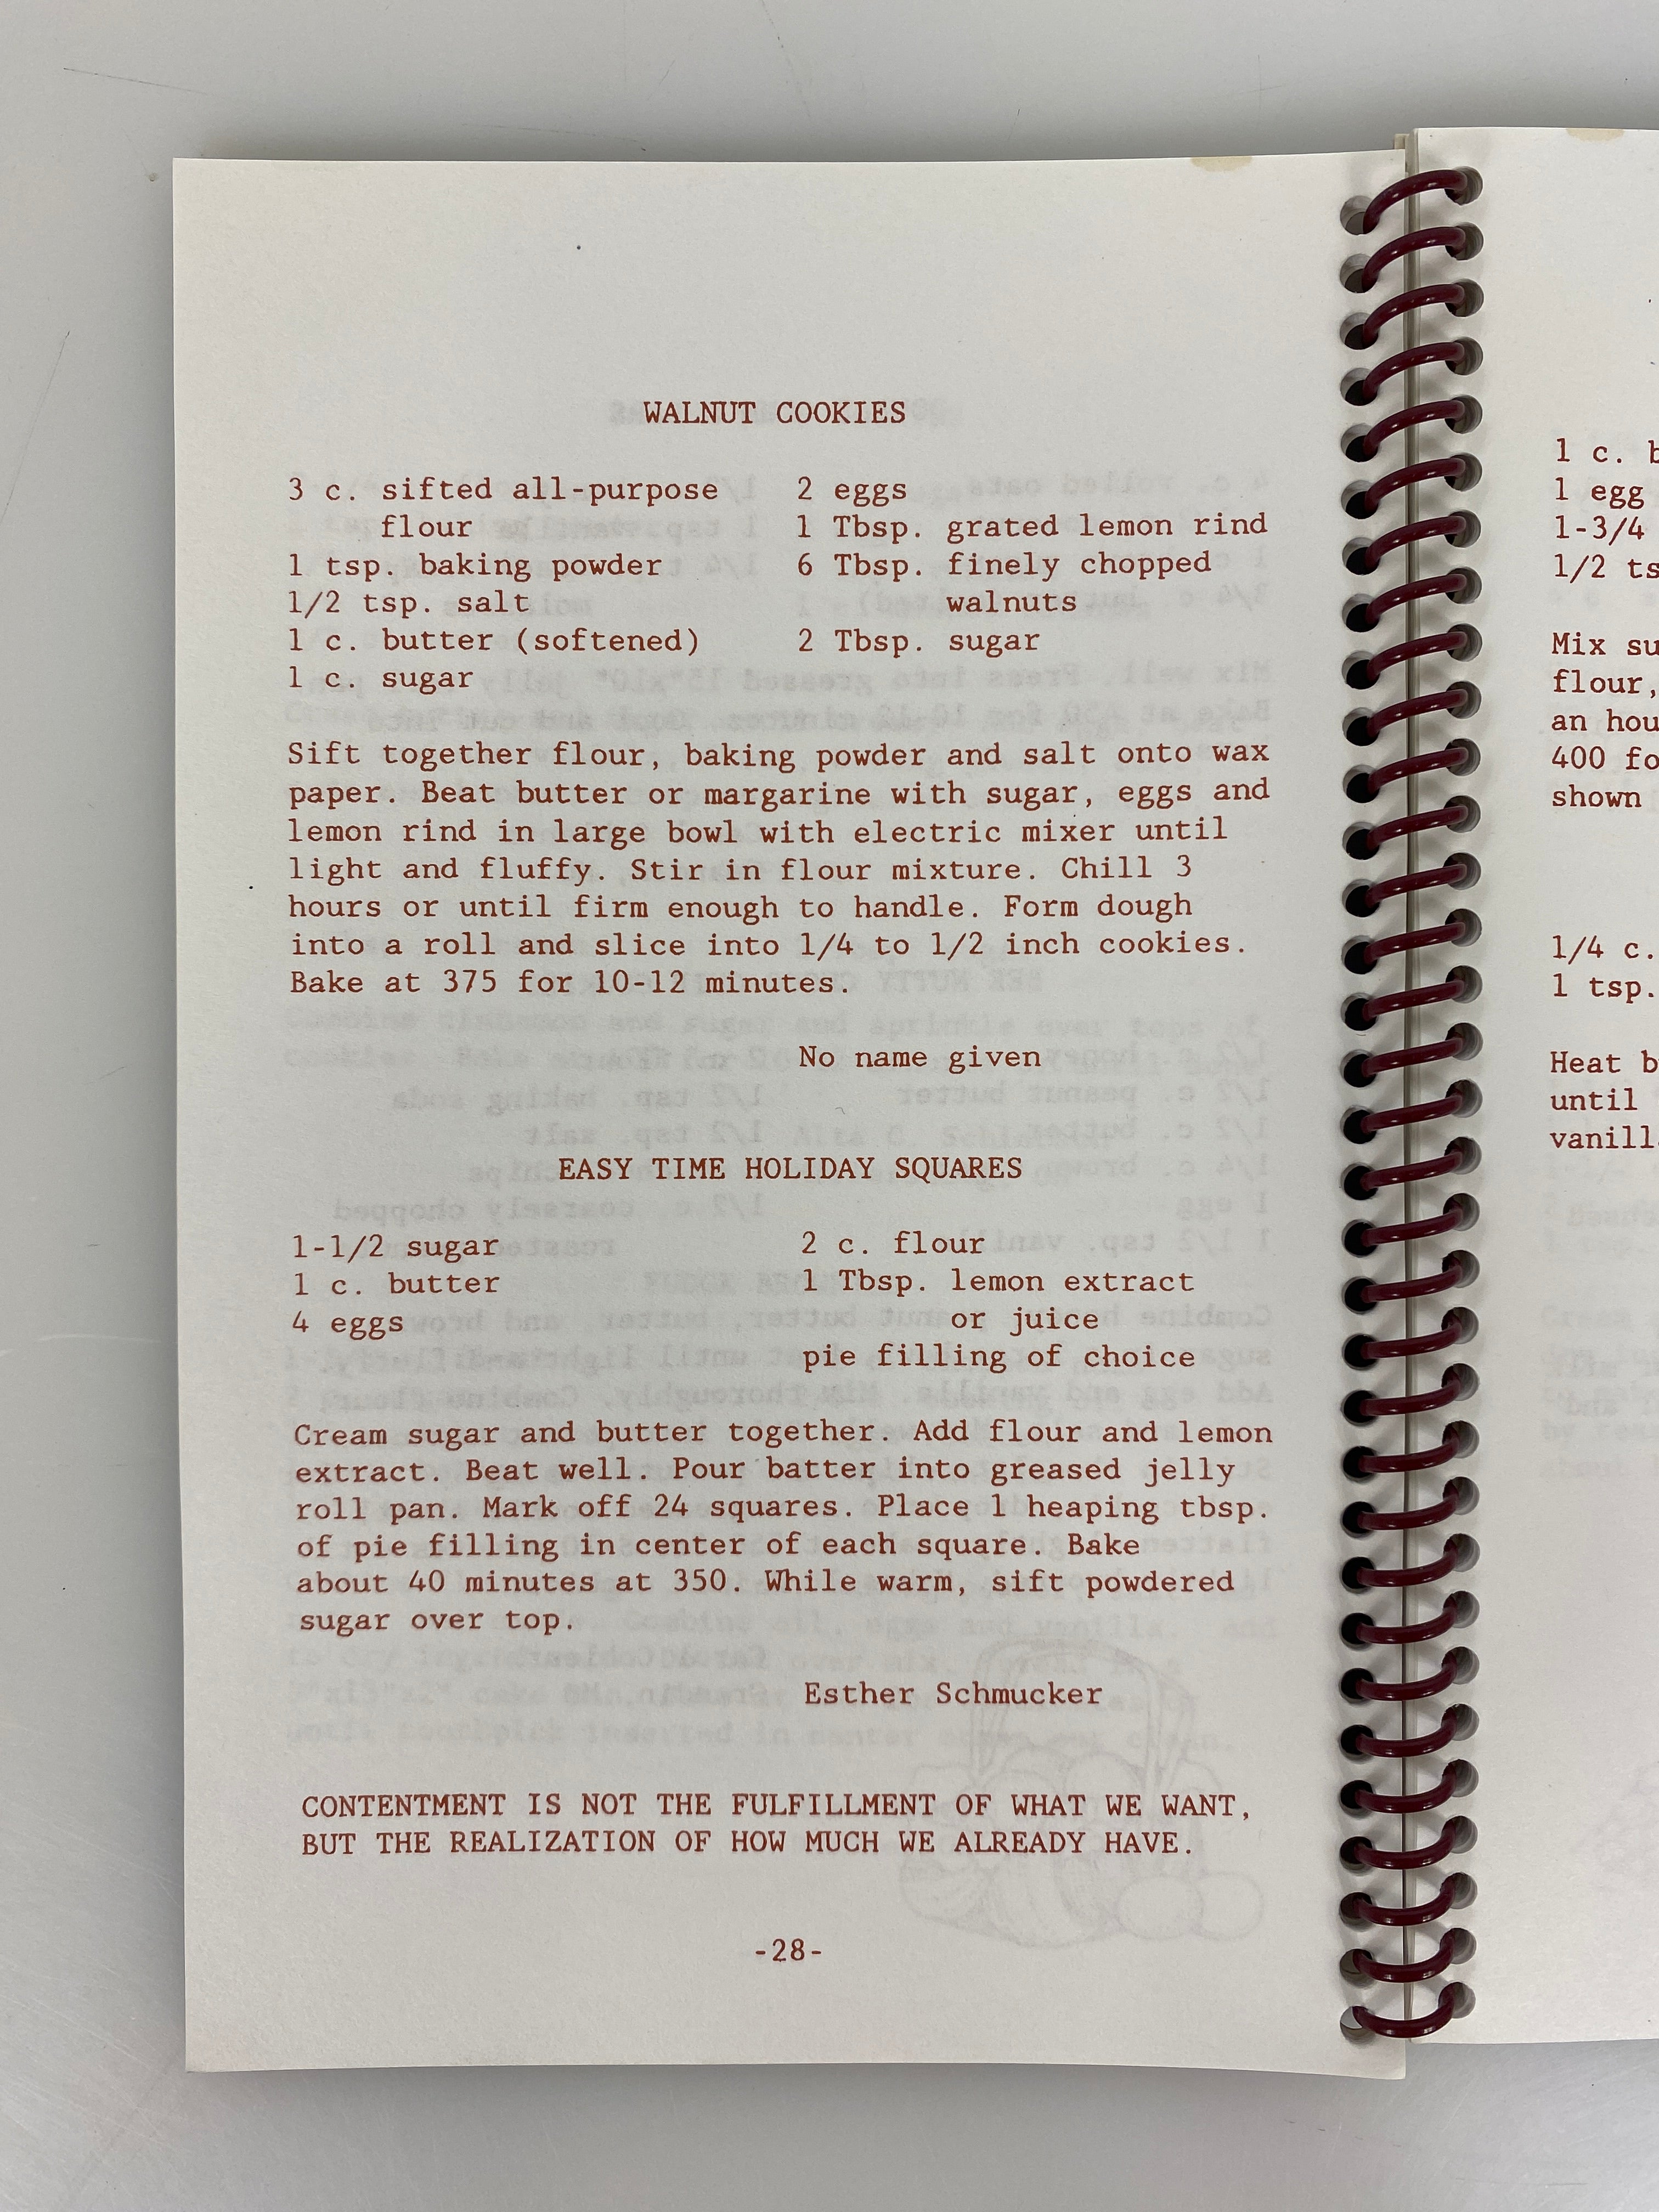 WALNUT COOKIES
3 c. sifted all-purpose
flour
1 tsp. baking powder
1/2 tsp. salt
1 c. butter (softened)
1 c. sugar
2 eggs
1 Tbsp. grated lemon rind
6 Tbsp. finely chopped
walnuts
2 Tbsp. sugar
Sift together flour, baking powder and salt onto wax
paper. Beat butter or margarine with sugar, eggs and
lemon rind in large bowl with electric mixer until
light and fluffy. Stir in flour mixture. Chill 3
hours or until firm enough to handle. Form dough
into a roll and slice into 1/4 to 1/2 inch cookies.
Bake at 375 for 10-12 minutes.
No name given
EASY TIME HOLIDAY SQUARES
1-1/2 sugar
1 c. butter
4 eggs
2 c. flour
1 Tbsp. lemon extract
or juice
pie filling of choice
Cream sugar and butter together. Add flour and lemon
extract. Beat well. Pour batter into greased jelly
roll pan. Mark off 24 squares. Place 1 heaping tbsp.
of pie filling in center of each square. Bake
about 40 minutes at 350. While warm, sift powdered
sugar over top.
Esther Schmucker
CONTENTMENT IS NOT THE FULFILLMENT OF WHAT WE WANT,
BUT THE REALIZATION OF HOW MUCH WE ALREADY HAVE.
-28-
1 c.
1 egg
1-3/4
1/2
Mix
flour,
an
400
shown
1/4 c.
1 tsp.
Heat
until